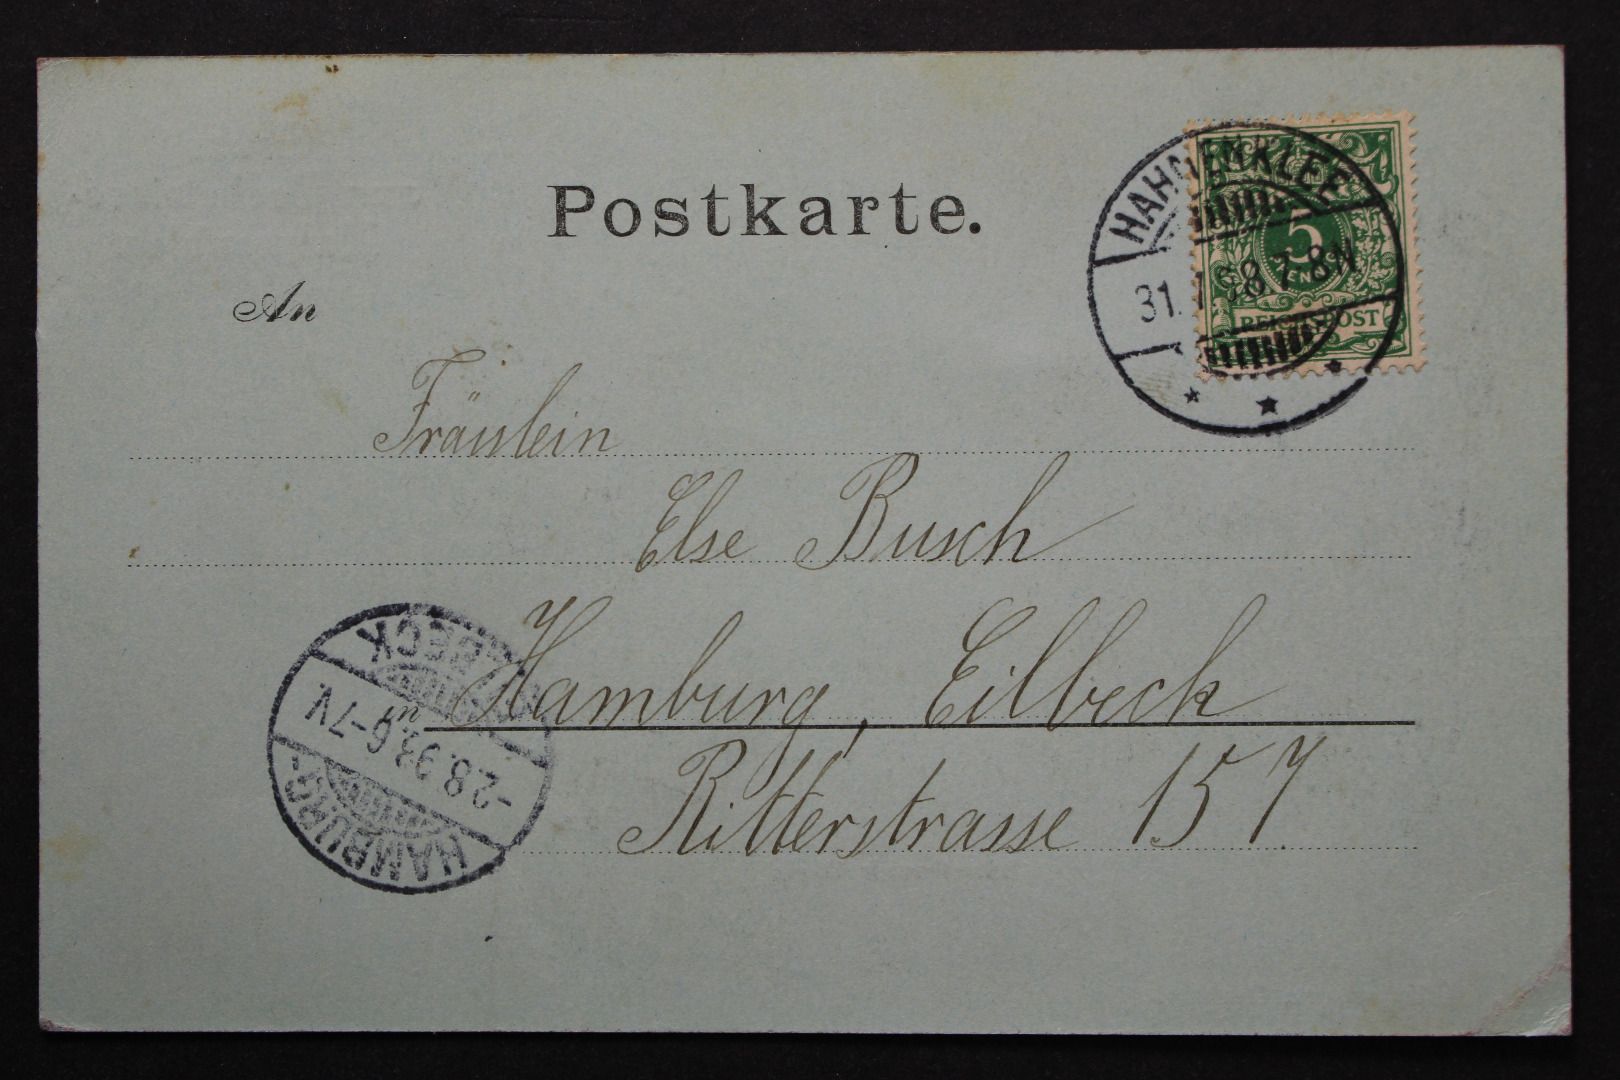 Postkarte.
HAHNENKLEE
31. 7. 98. 7-8N
5
PFENNIG
REICHSPOST
An
Fräulein
Else Busch
in Hamburg, Eilbeck
Ritterstrasse 157
HAMBURG-
-2.8.98. 6-7V.